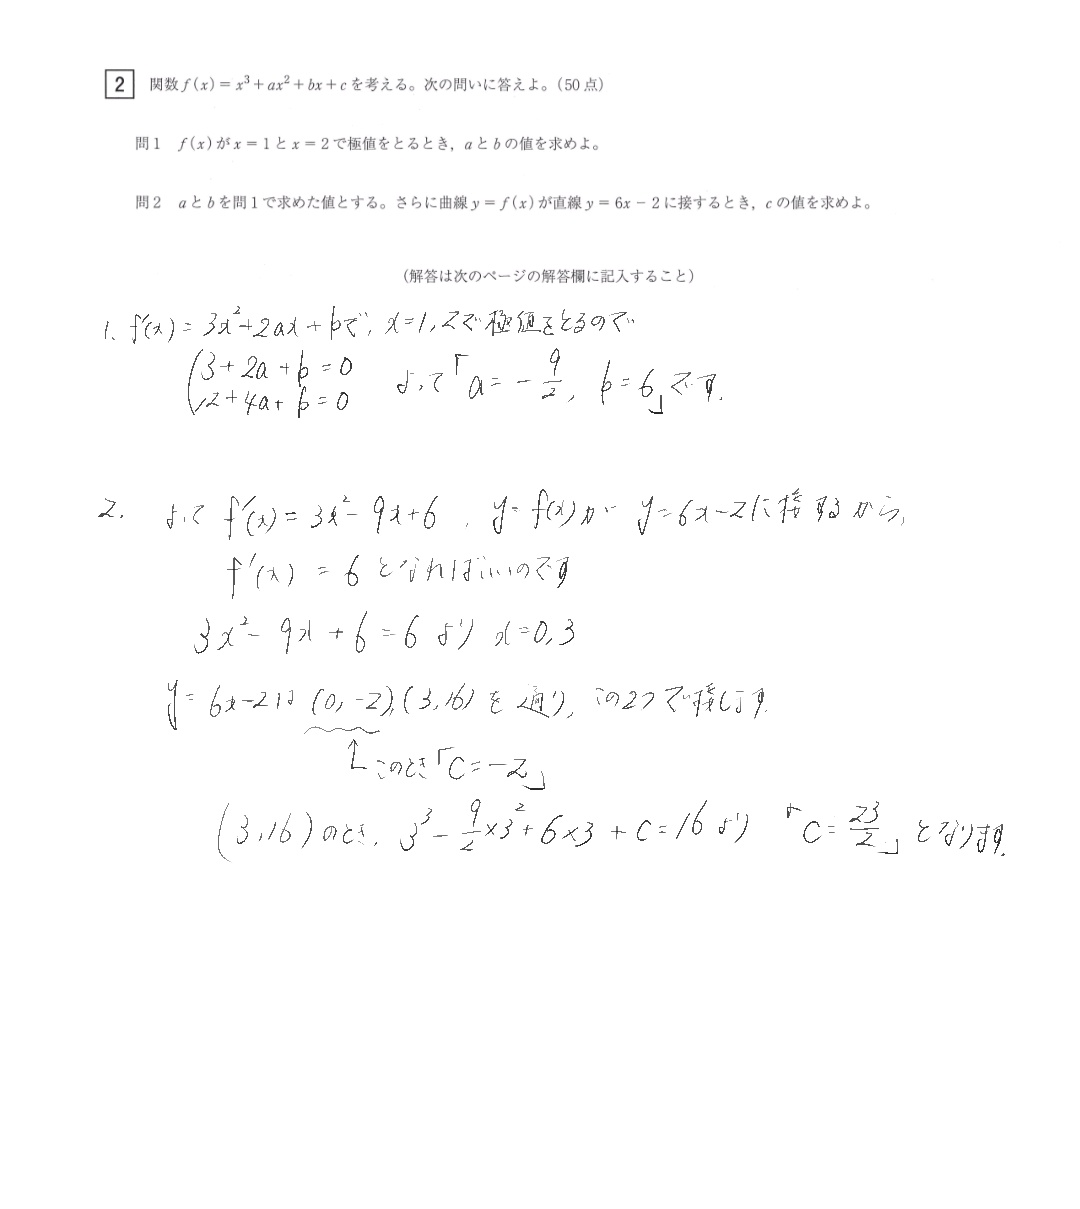 2 関数 f(x) = x³ + ax² + bx + c を考える。次の問いに答えよ。(50点)
問1 f(x) が x = 1 と x = 2 で極値をとるとき, a と b の値を求めよ。
問2 a と b を問1で求めた値とする。さらに曲線 y = f(x) が直線 y = 6x − 2 に接するとき, c の値を求めよ。
(解答は次のページの解答欄に記入すること)
1. f'(x) = 3x² + 2ax + b で, x=1, 2で極値をとるので
3 + 2a + b = 0
12 + 4a + b = 0 よって「a = −9/2, b = 6」です.
2. よって f'(x) = 3x² − 9x + 6 , y = f(x) が y = 6x − 2 に接するから,
f'(x) = 6 となればいいのです
3x² − 9x + 6 = 6 より x = 0, 3
y = 6x − 2 は (0, −2), (3, 16) を通り, この2つで接します.
↑このとき「C = −2」
(3, 16) のとき, 3³ − 9/2 × 3² + 6×3 + C = 16 より 「C = 23/2」となります.